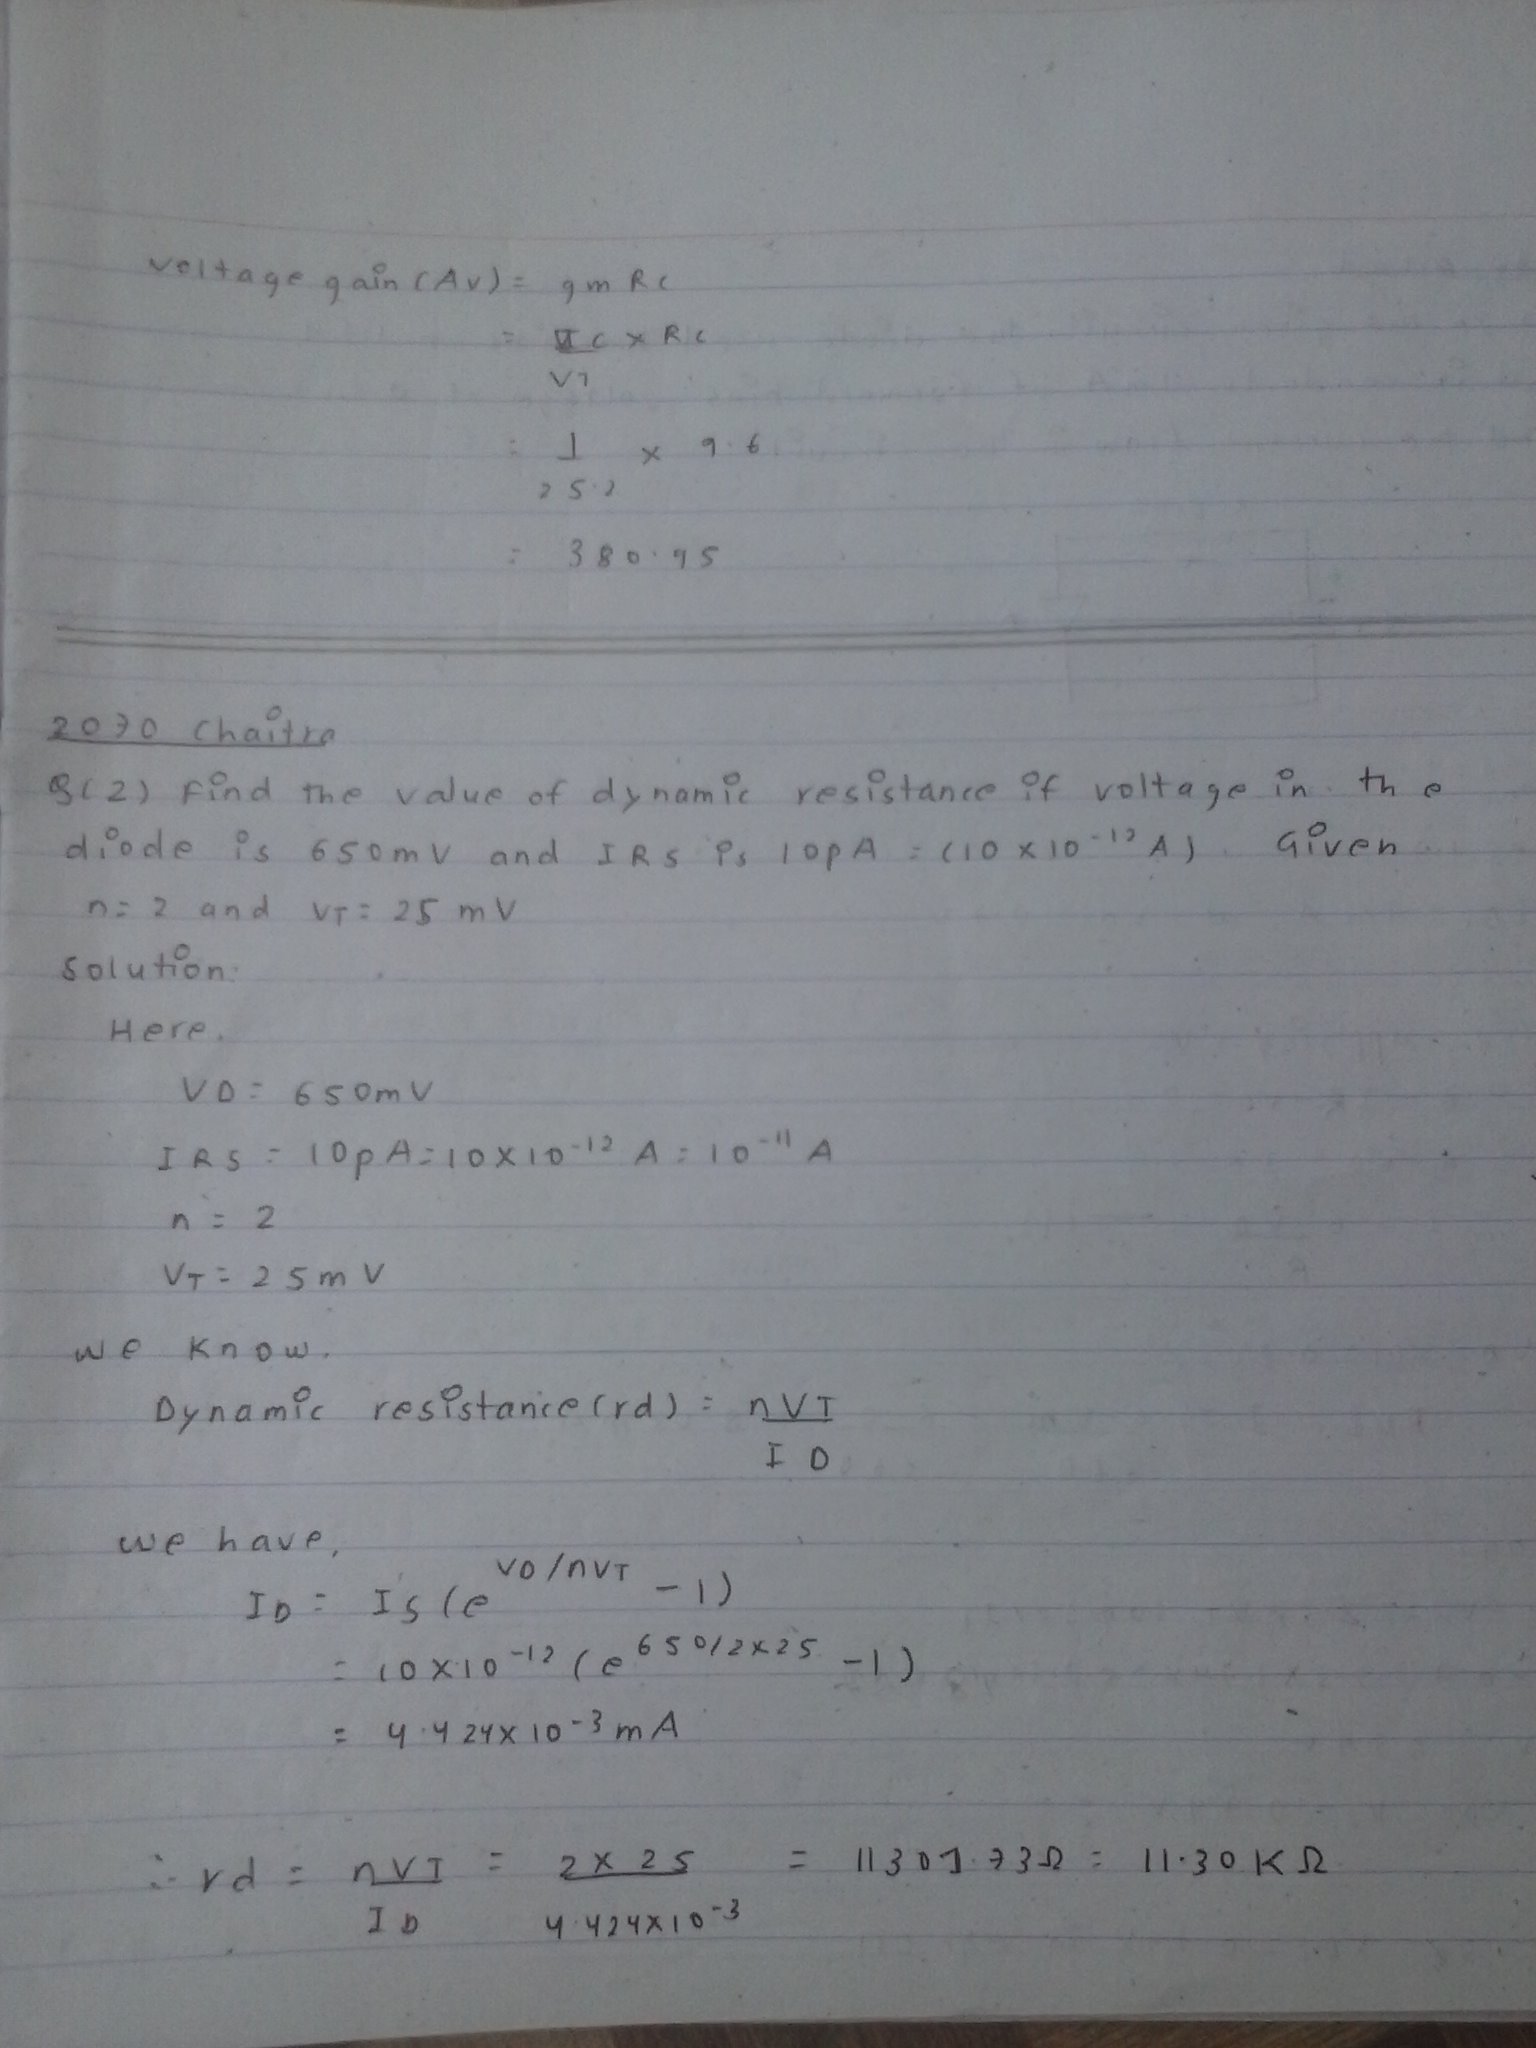 voltage gain (Av) = gm Rc
= Ic x Rc
VT
= 1 x 9.6
25.2
= 380.95
2070 Chaitra
Q(2) Find the value of dynamic resistance if voltage in the
diode is 650mV and IRS is 10pA = (10 x 10-12 A). Given
n = 2 and VT = 25 mV
Solution:
Here,
VD = 650mV
IRS = 10pA = 10X10-12 A = 10-11 A
n = 2
VT = 25mV
we know.
Dynamic resistance (rd) = nVT
ID
we have,
ID = Is (e VD/nVT - 1)
= 10X10-12 (e 650/2x25 - 1)
= 4.424x10-3 mA
∴ rd = nVT = 2X25 = 11301.73Ω = 11.30KΩ
ID 4.424X10-3